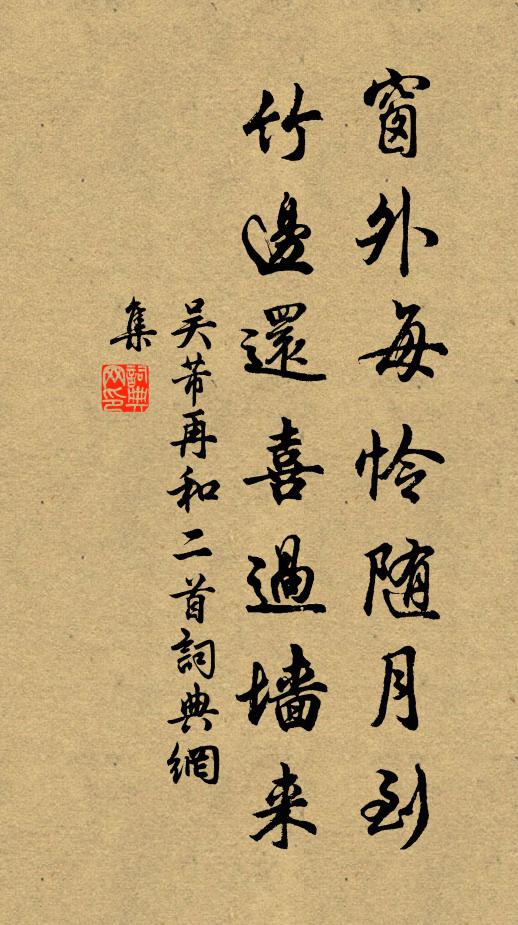 窗外每怜随月到
竹邊還喜過墙来
吴芾再和二首詞典網
集
詞典
网印